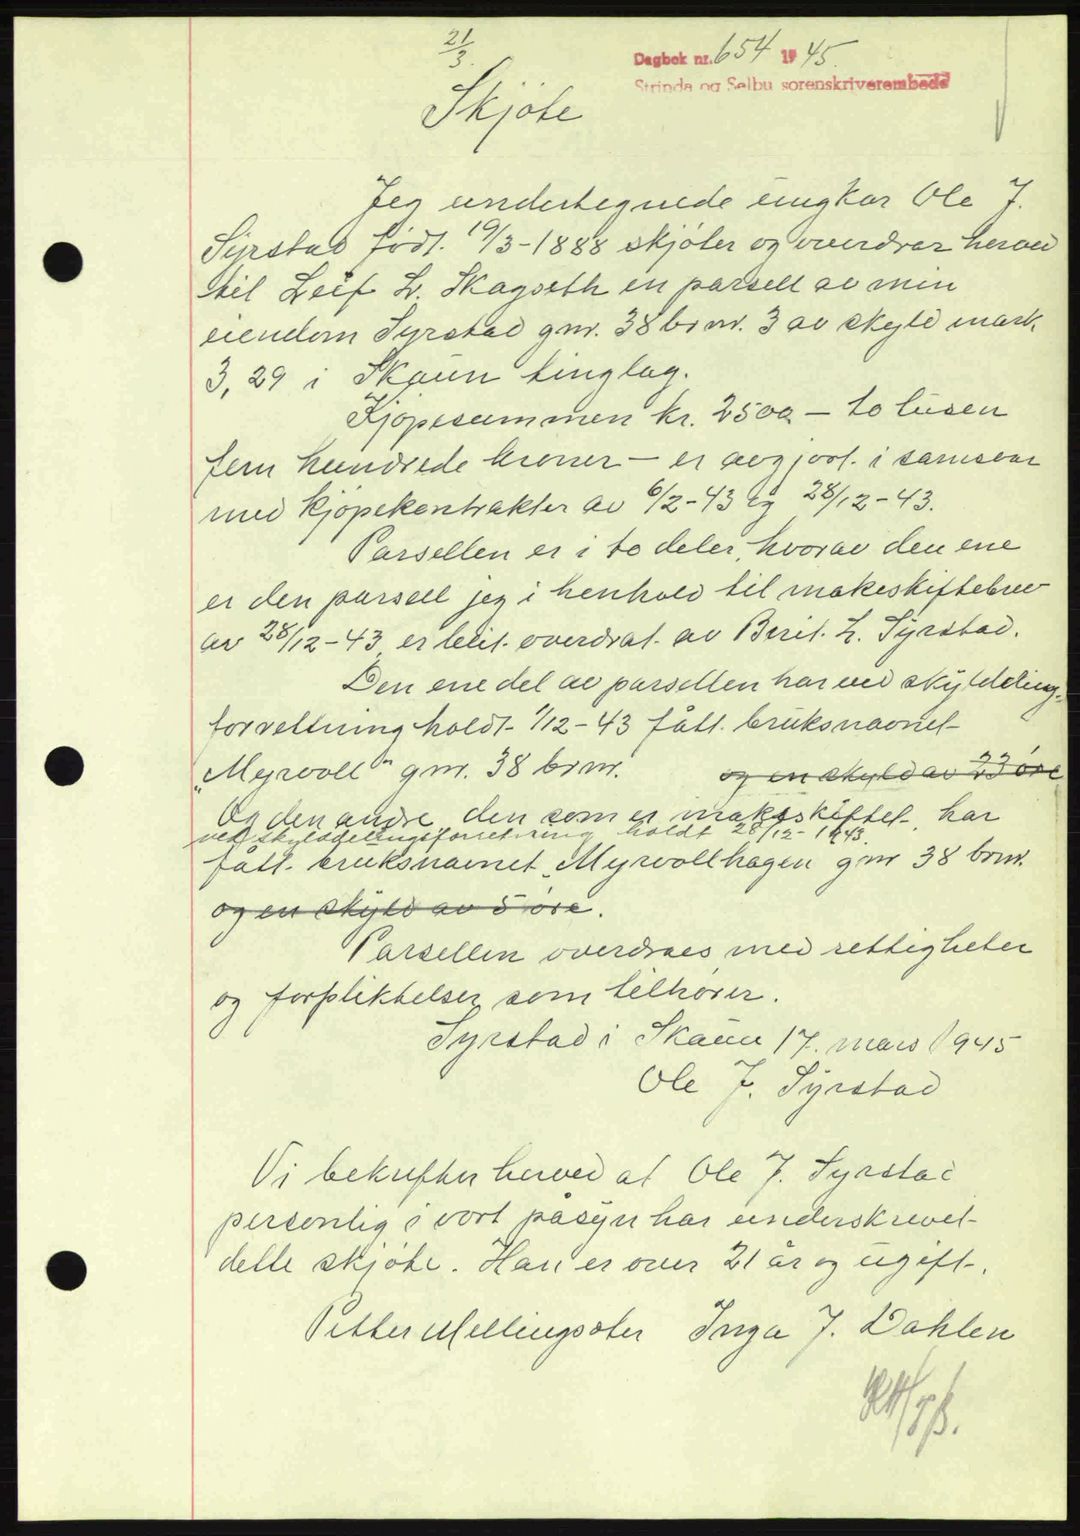 21/3.
Dagbok nr. 654 1945.
Strinda og Selbu sorenskriverembede
Skjøte
Jeg undertegnede ungkar Ole J.
Syrstad født 19/3-1888 skjøter og overdrar herved
til Leif L. Skagseth en parsell av min
eiendom Syrstad gnr. 38 brnr. 3 av skyld mark
3,29 i Skaun tinglag.
Kjøpesummen kr. 2500.- to tusen
fem hundrede kroner - er avgjort i samsvar
med kjøpekontrakter av 6/2-43 og 28/12-43.
Parsellen er i to deler, hvorav den ene
er den parsell jeg i henhold til makeskiftebrev
av 28/12-43, er blit overdrat av Berit L. Syrstad.
Den ene del av parsellen har ved skylddeling-
forrettning holdt 1/12-43 fått bruksnavnet
"Myrvoll" gnr. 38 brnr. og en skyld av 23 øre
Og den andre, den som er makeskiftet, har
ved skylddelingsforretning holdt 28/12-1943.
fått bruksnavnet "Myrvollhagen gnr 38 brnr.
og en skyld av 5 øre.
Parsellen overdraes med rettigheter
og forpliktelser som tilhører.
Syrstad i Skaun 17. mars 1945
Ole J. Syrstad
Vi bekrefter herved at Ole J. Syrstad
personlig i vort påsyn har underskrevet
dette skjøte. Han er over 21 år og ugift.
Petter Mellingsæter Inga J. Dahlen